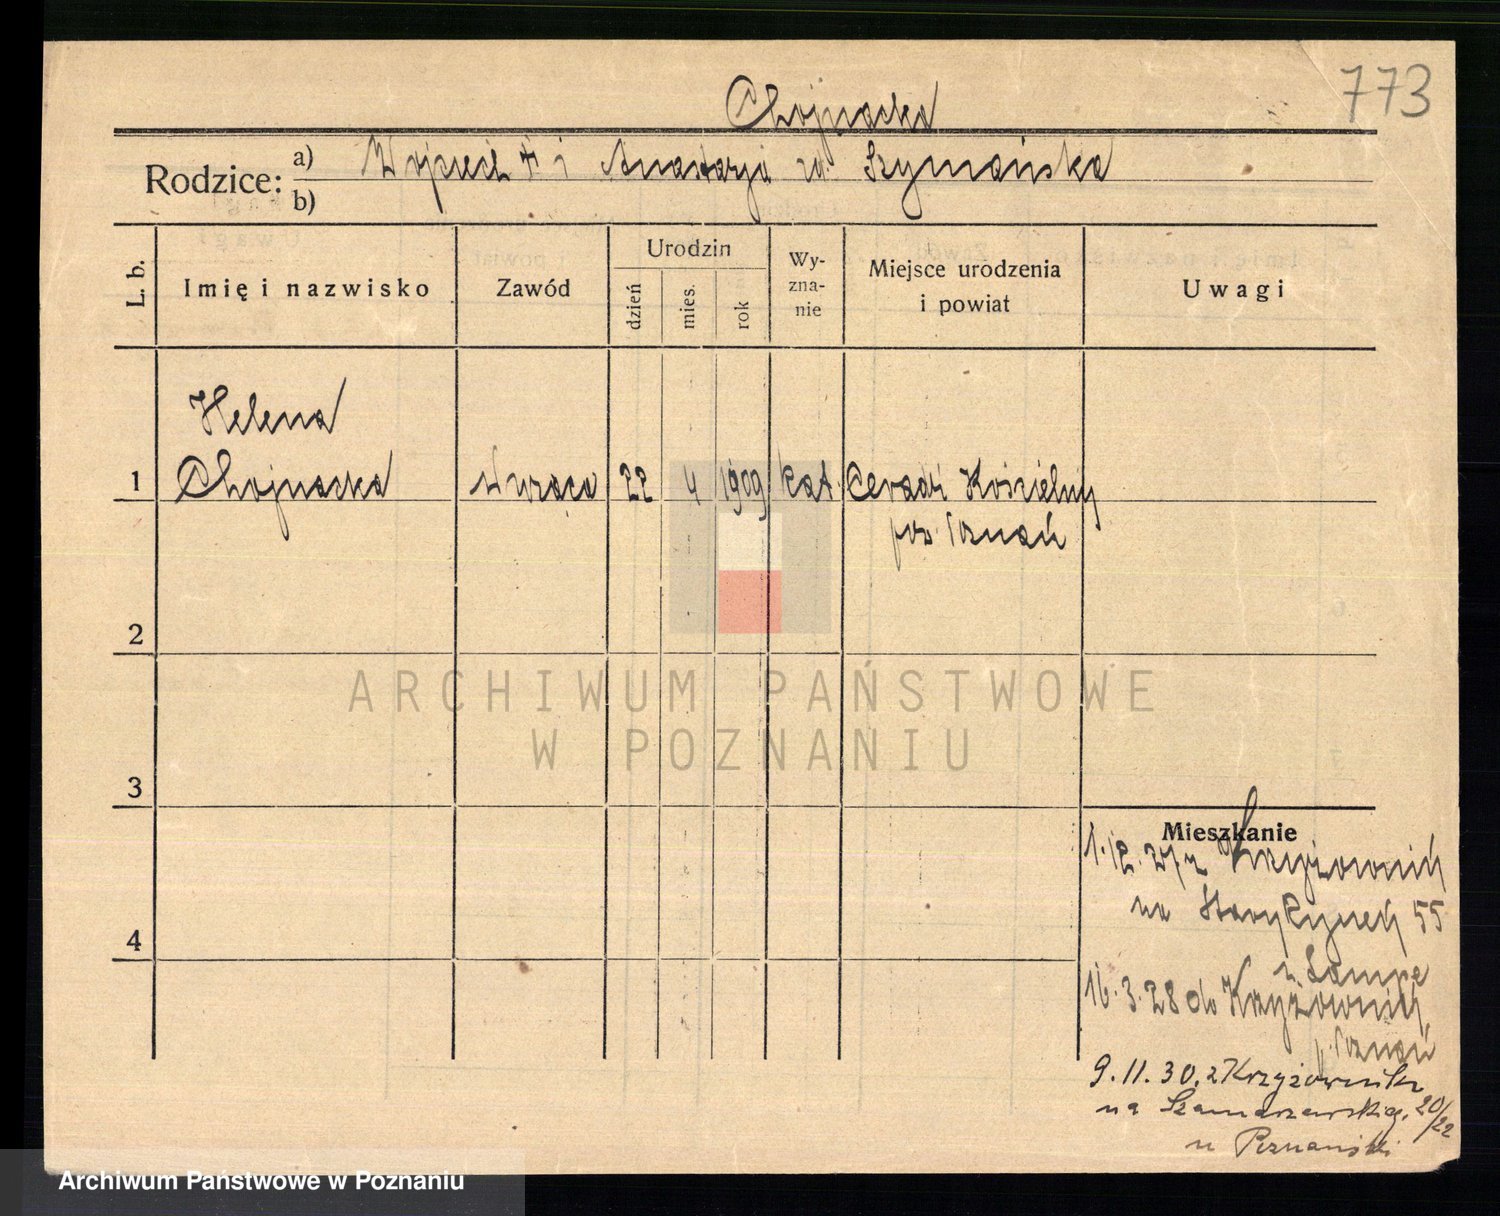 773
Chojnacka
Rodzice:
a) Wojciech † i Anastazja ur. Szymańska
b)
L. b.
Imię i nazwisko
Zawód
Urodzin
dzień
mies.
rok
Wy-
zna-
nie
Miejsce urodzenia
i powiat
Uwagi
Helena
1 Chojnacka 22 4 1909 kat. Ceradź Kościelny
pow. Poznań
2
3
4
Mieszkanie
1.12.27 z Krzyżownik
na Stary Rynek 55
u Lampe
16.3.28 do Krzyżownik
p. Poznań
9.11.30. z Krzyżownik
na Szamarzewskieg. 20/22
u Poznański
ARCHIWUM PAŃSTWOWE
W POZNANIU
Archiwum Państwowe w Poznaniu